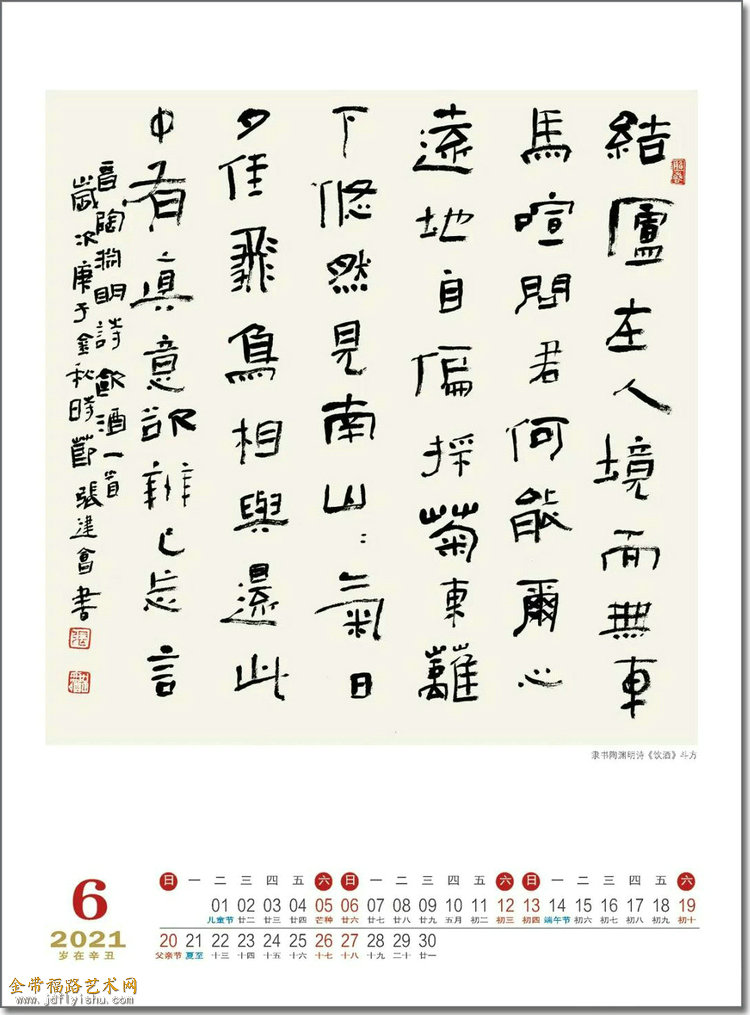 結廬在人境而無車
馬喧問君何能爾心
遠地自偏採菊東蘺
下悠然見南山〻氣日
夕佳飛鳥相與還此
中有真意欲辨已忘言
晉陶淵明詩飲酒一首
歲次庚子金秋時節張建會書
隶书陶渊明诗《饮酒》斗方
6
2021
岁在辛丑
日 一 二 三 四 五 六 日 一 二 三 四 五 六 日 一 二 三 四 五 六
01 02 03 04 05 06 07 08 09 10 11 12 13 14 15 16 17 18 19
儿童节 廿二 廿三 廿四 芒种 廿六 廿七 廿八 廿九 五月 初二 初三 初四 端午节 初六 初七 初八 初九 初十
20 21 22 23 24 25 26 27 28 29 30
父亲节 夏至 十三 十四 十五 十六 十七 十八 十九 二十 廿一
金带福路艺术网
www.jdflyishu.com